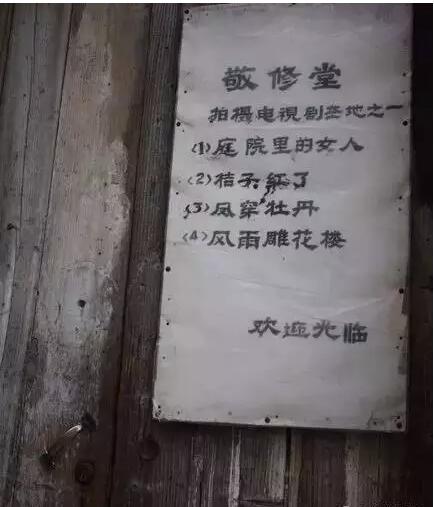 敬修堂
拍摄电視剧基地之一
(1)庭院里的女人
(2)桔子红了
(3)风穿牡丹
(4)风雨雕花楼
欢迎光临